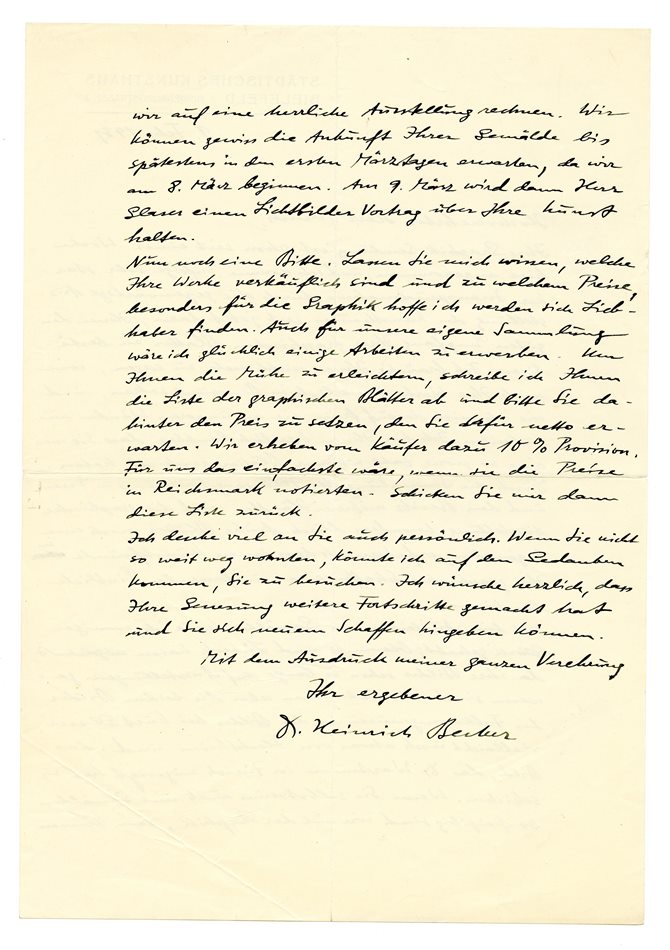 wir auf eine herrliche Ausstellung rechnen. Wir
können gewiss die Ankunft Ihrer Gemälde bis
spätestens in den ersten Märztagen erwarten, da wir
am 8. März beginnen. Am 9. März wird dann Herr
Glaser einen Lichtbilder Vortrag über Ihre Kunst
halten.
Nun noch eine Bitte. Lassen Sie mich wissen, welche
Ihre Werke verkäuflich sind und zu welchem Preise,
besonders für die Graphik hoffe ich werden sich Lieb-
haber finden. Auch für unsere eigene Sammlung
wäre ich glücklich einige Arbeiten zu erwerben. Um
Ihnen die Mühe zu erleichtern, schreibe ich Ihnen
die Liste der graphischen Blätter ab und bitte Sie da-
hinter den Preis zu setzen, den Sie dafür netto er-
warten. Wir erheben vom Käufer dazu 10 % Provision.
Für uns das einfachste wäre, wenn sie die Preise
in Reichsmark notierten. Schicken Sie mir dann
diese Liste zurück.
Ich denke viel an Sie auch persönlich. Wenn Sie nicht
so weit weg wohnten, könnte ich auf den Gedanken
kommen, Sie zu besuchen. Ich wünsche herzlich, dass
Ihre Genesung weitere Fortschritte gemacht hat
und Sie sich neuem Schaffen hingeben können.
Mit dem Ausdruck meiner ganzen Verehrung
Ihr ergebener
Dr. Heinrich Becker